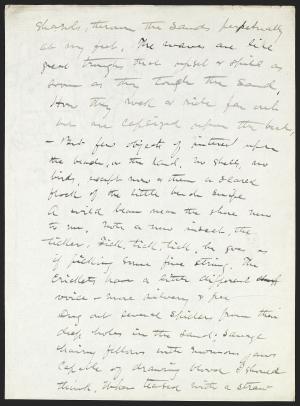 shawls, throw the sands perpetually
at my feet. The waves are like
great troughs that upset & spill as
soon as they touch the sand,
How they rock & ride far out
but are capsized upon the beach,
— But few objects of interest upon
the beach, or the land. No shells, no
birds, except now & then a scared
flock of the little beach snipe
A wild bean near the shore new
to me. Note a new insect, the
ticker. Tick, tick tick, he goes, as
if picking some fine string. The
Crickets have a little different
voice — more silvery & fine
Dug out several spiders from their
deep holes in the sand; savage
hairy fellows with enormous jaws
Capable of drawing blood I should
think. When teased with a straw